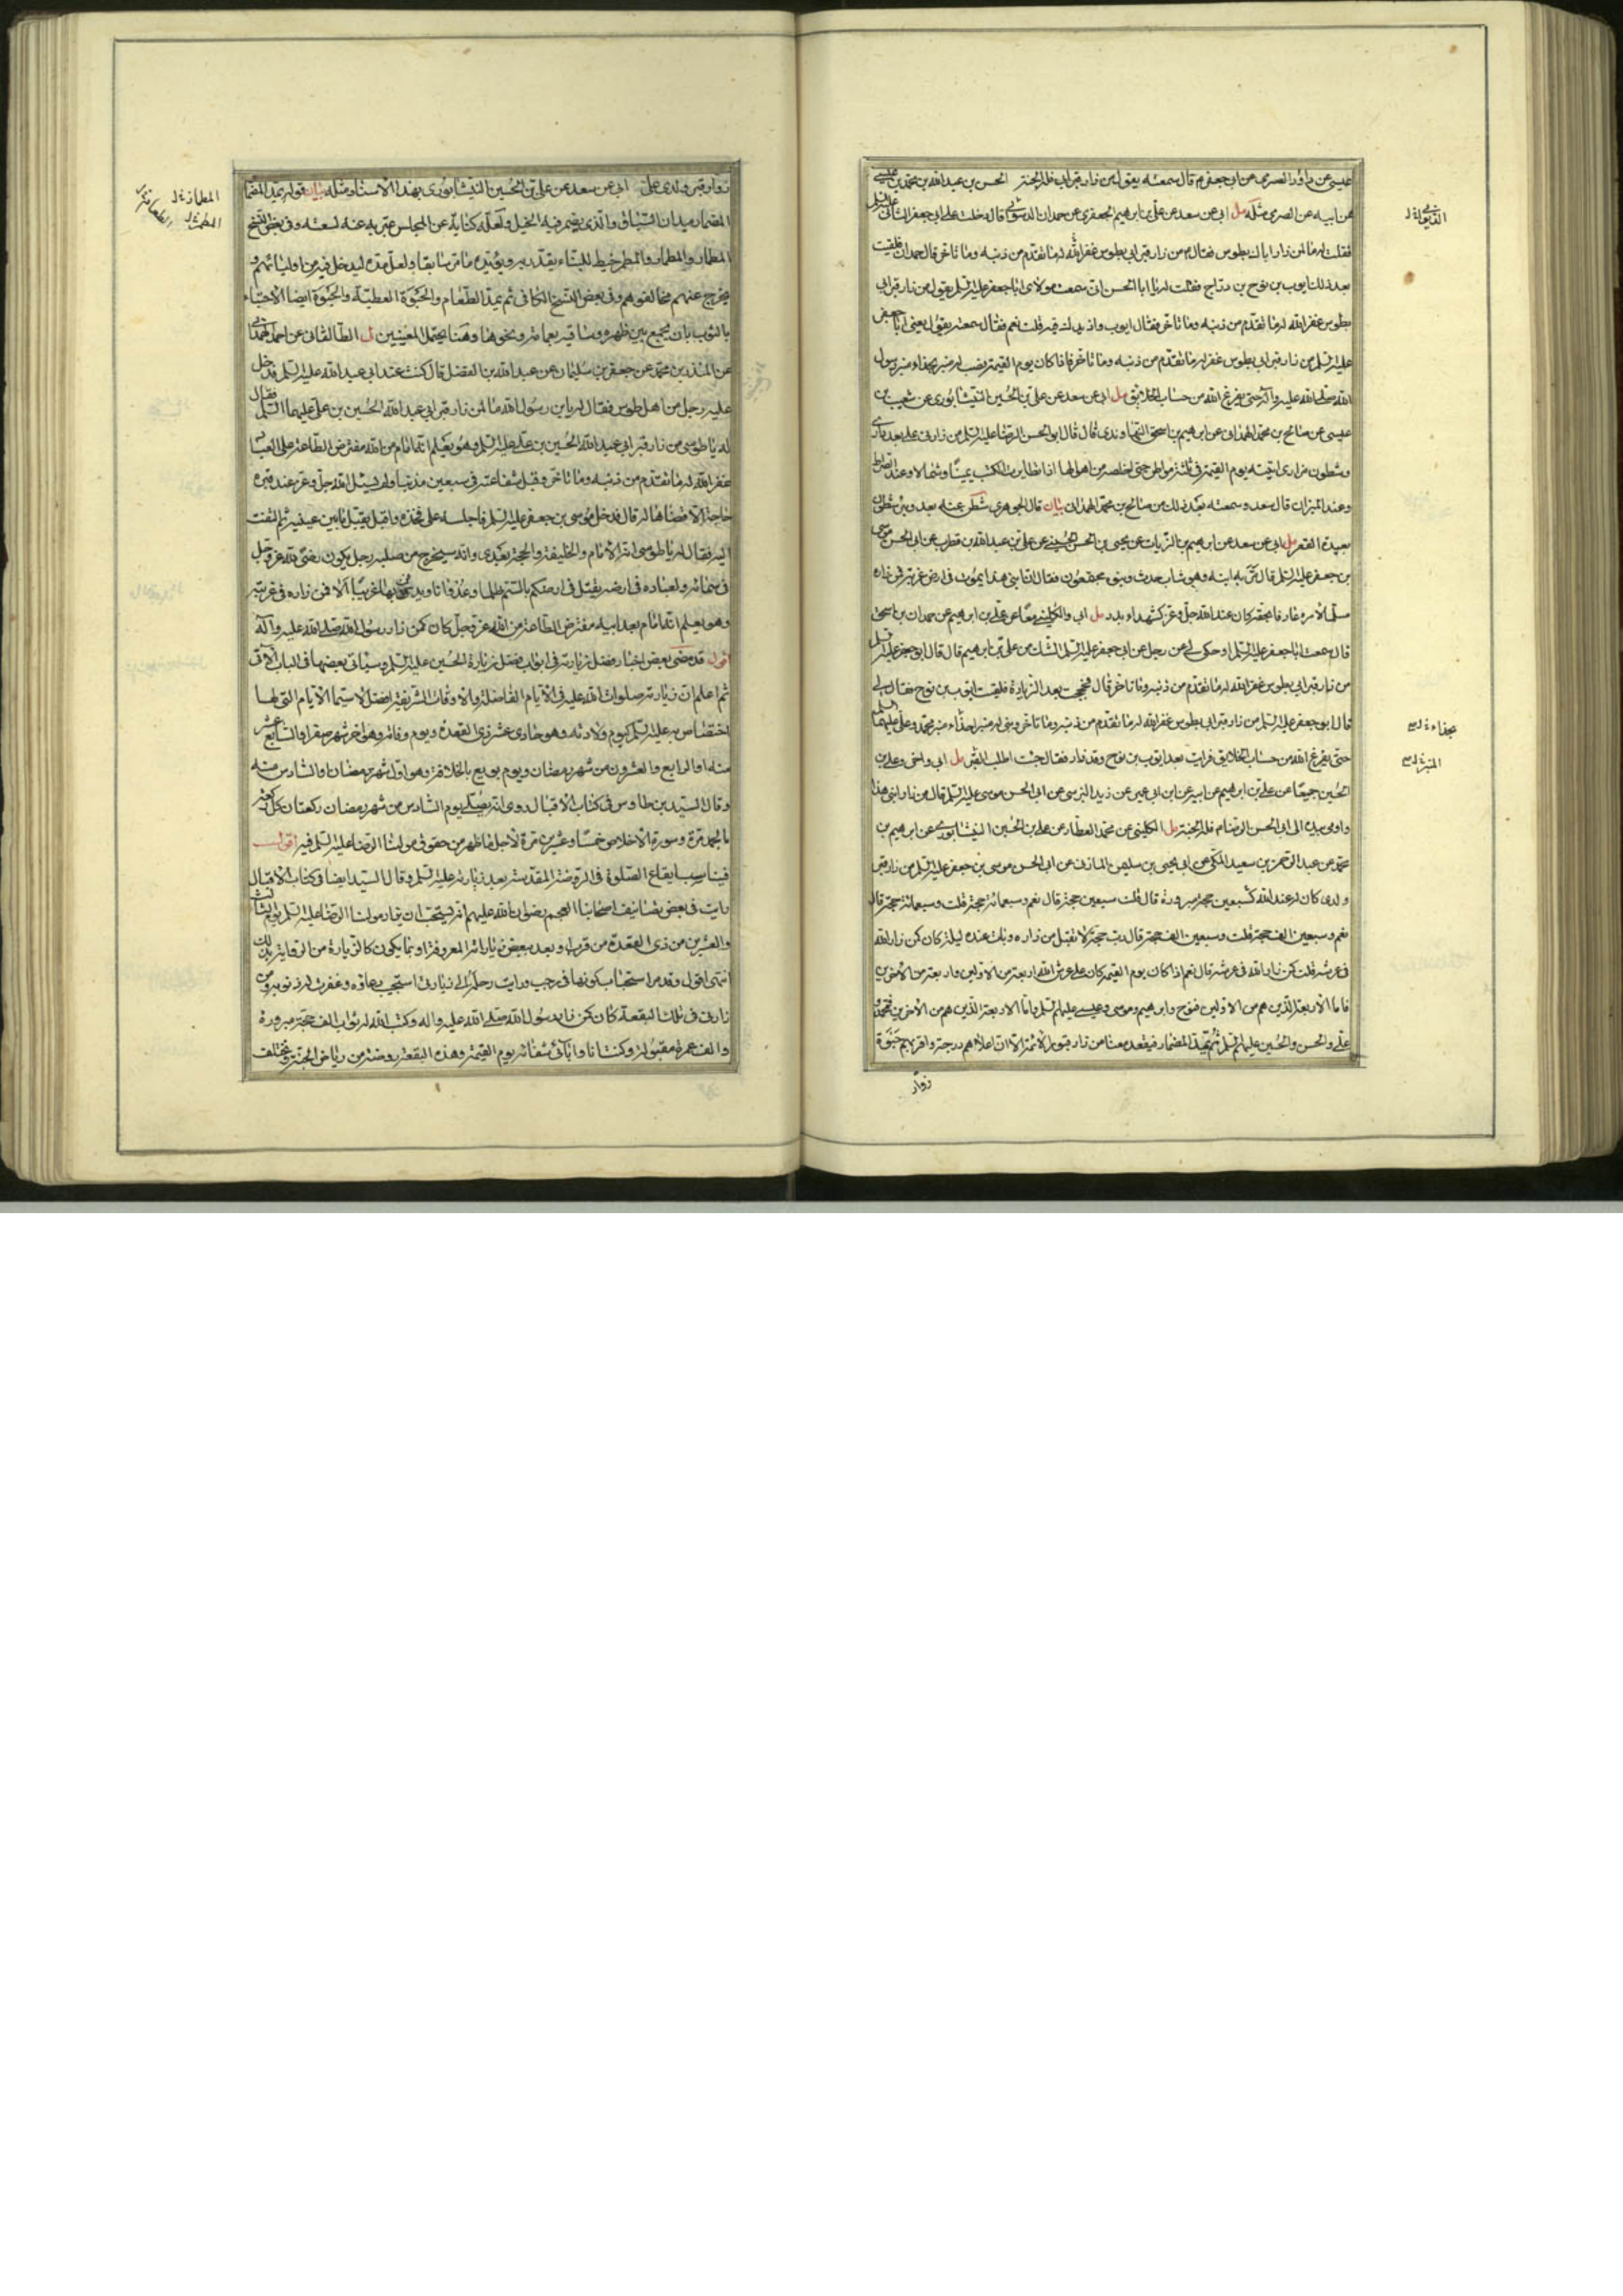 عيسى عن داود الصرمى عن ابى جعفر ع قال سمعته يقول من زار قبر ابى فله الجنة الحسن بن عبد الله بن محمد بن عيسى
عن ابيه عن الصرمى مثله مل ابى عن سعد عن على بن ابرهيم الجعفرى عن حمدان الدسوائى قال دخلت على ابى جعفر الثانى عليه السلم
فقلت له ما لمن زار اباك بطوس فقال ع من زار قبر ابى بطوس غفر الله له ما تقدم من ذنبه وما تاخر قال حمدان فلقيت
بعد ذلك ايوب بن نوح بن دراج فقلت له يا ابا الحسن انى سمعت مولاى ابا جعفر عليه السلم يقول من زار قبر ابى
بطوس غفر الله له ما تقدم من ذنبه وما تاخر فقال ايوب وازيدك فيه قلت نعم فقال سمعته يقول يعنى ابا جعفر
عليه السلم من زار قبر ابى بطوس غفر له ما تقدم من ذنبه وما تاخر فاذا كان يوم القيمة نصب له منبر بحذاء منبر رسول
الله صلى الله عليه وآله حتى يفرغ الله من حساب الخلائق مل ابى عن سعد عن على بن الحسين النيشابورى عن شعيب بن
عيسى عن صالح بن محمد الهمدانى عن ابرهيم بن اسحق النهاوندى قال قال ابو الحسن الرضا عليه السلم من زارنى على بعد دارى
وشطون مزارى اتيته يوم القيمة فى ثلثة مواطن حتى اخلصه من اهوالها اذا تطايرت الكتب يمينا وشمالا وعند الصراط
وعند الميزان قال سعد وسمعته بعد ذلك من صالح بن محمد الهمدانى بيان قال الجوهرى شطن عنه بعد وبئر شطون
بعيدة القعر مل ابى عن سعد عن ابرهيم بن الزيات عن يحيى بن الحسن الحسينى عن على بن عبد الله بن قطرب عن ابى الحسن موسى
بن جعفر عليه السلم قال مر به ابنه وهو شاب حدث وبنوه مجتمعون فقال ان ابنى هذا يموت فى ارض غربة فمن زاره
مسلما لامره عارفا بحقه كان عند الله جل وعز كشهداء بدر مل ابى والكلينى معا عن على بن ابرهيم عن حمدان بن اسحق
قال سمعت ابا جعفر عليه السلم او حكى لى عن رجل عن ابى جعفر عليه السلم الشك من على بن ابرهيم قال قال ابو جعفر عليه السلم
من زار قبر ابى بطوس غفر الله له ما تقدم من ذنبه وما تاخر قال فحججت بعد الزيارة فلقيت ايوب بن نوح فقال لى
قال ابو جعفر عليه السلم من زار قبر ابى بطوس غفر الله له ما تقدم من ذنبه وما تاخر وبنى له منبرا حذاء منبر محمد وعلى عليهما السلم
حتى يفرغ الله من حساب الخلايق فرايت بعد ايوب بن نوح وقد زار فقال جئت اطلب المنبر مل ابى واخى وعلى بن
الحسين جميعا عن على بن ابرهيم عن ابيه عن ابن ابى عمير عن زيد النرسى عن ابى الحسن موسى عليه السلم قال من زار ابنى هذا
واومى بيده الى ابى الحسن الرضا ع فله الجنة مل الكلينى عن محمد العطار عن على بن الحسين النيشابورى عن ابرهيم بن
محمد عن عبد الرحمن بن سعيد المكى عن ابى يحيى بن سليمن المازنى عن ابى الحسن موسى بن جعفر عليه السلم من زار قبر
ولدى كان له عند الله كسبعين حجة مبرورة قال قلت سبعين حجة قال نعم وسبعمائة حجة قلت وسبعمائة حجة قال
نعم وسبعين الف حجة قلت وسبعين الف حجة قال رب حجة لا تقبل من زاره وبات عنده ليلة كان كمن زار الله
فى عرشه قلت كمن زار الله فى عرشه قال نعم اذا كان يوم القيمة كان على عرش الله اربعة من الاولين واربعة من الآخرين
فاما الاربعة الذين هم من الاولين فنوح وابرهيم وموسى وعيسى عليهم السلم واما الاربعة الذين هم من الآخرين فمحمد و
على والحسن والحسين عليهم السلم ثم يمد المضمار فيقعد معنا من زار قبور الائمة الا ان اعلاهم درجة واقربهم حبوة
زوار
بحذاء
المنبر
زوار قبر ولدى على ابى عن سعد عن على بن الحسين النيشابورى بهذا الاسناد مثله بيان قوله يمد المضمار
المضمار ميدان السباق والذى يضمر فيه الخيل ولعله كناية عن المجلس عبر به عنه لسعته وفى بعض النسخ
المطمار والمطمار والمطمر خيط للبناء يقدر به ويؤيده ما مر سابقا ولعل مده ليدخل فيه من اوليائهم و
يخرج عنهم مخالفوهم وفى بعض النسخ الكافى ثم يمد الطعام والحبوة العطية والحبوة ايضا الاحتباء
بالثوب بان يجمع بين ظهره وساقيه بعمامة ونحوها وههنا يحتمل المعنيين ل الطالقانى عن احمد الهمدانى
عن المنذر بن محمد عن جعفر بن سليمان عن عبد الله بن الفضل قال كنت عند ابى عبد الله عليه السلم فدخل
عليه رجل من اهل طوس فقال له يا بن رسول الله ما لمن زار قبر ابى عبد الله الحسين بن على عليهما السلم فقال
له يا طوسى من زار قبر ابى عبد الله الحسين بن على عليه السلم وهو يعلم انه امام من الله مفترض الطاعة على العباد
غفر الله له ما تقدم من ذنبه وما تاخر وقبل شفاعته فى سبعين مذنبا ولم يسئل الله جل وعز عند قبره
حاجة الا قضاها له قال فدخل موسى بن جعفر عليه السلم فاجلسه على فخذه واقبل يقبل ما بين عينيه ثم التفت
اليه فقال له يا طوسى انه الامام والخليفة والحجة بعدى وانه سيخرج من صلبه رجل يكون رضى لله عز وجل
فى سمائه ولعباده فى ارضه يقتل فى ارضكم بالسم ظلما وعدوانا ويدفن بها غريبا الا فمن زاره فى غربته
وهو يعلم انه امام بعد ابيه مفترض الطاعة من الله عز وجل كان كمن زار رسول الله صلى الله عليه وآله
اقول قد مضى بعض اخبار فضل زيارته فى ابواب فضل زيارة الحسين عليه السلم وسياتى بعضها فى الباب الآتى
ثم اعلم ان زيارته صلوات الله عليه فى الايام الفاضلة والاوقات الشريفة افضل لا سيما الايام التى لها
اختصاص به عليه السلم كيوم ولادته وهو حادى عشر ذى القعدة ويوم وفاته وهو آخر شهر صفر او السابع عشر
منه او الرابع والعشرون من شهر رمضان ويوم بويع بالخلافة وهو اول شهر رمضان او السادس منه
وقال السيد بن طاوس فى كتاب الاقبال روى انه يصلى يوم السادس من شهر رمضان ركعتان كل ركعة
بالحمد مرة وسورة الاخلاص خمسا وعشرين مرة لاجل ما ظهر من حقوق مولانا الرضا عليه السلم فيه اقول
فيناسب ايقاع الصلوة فى الروضة المقدسة بعد زيارته عليه السلم وقال السيد ايضا فى كتاب الاقبال
رايت فى بعض تصانيف اصحابنا العجم رضوان الله عليهم انه يستحب ان يزار مولانا الرضا عليه السلم يوم الثالث
والعشرين من ذى القعدة من قرب او بعد ببعض زياراته المعروفة او بما يكون كالزيارة من الرواية بذلك
انتهى اقول وقد مر استحباب كونها فى رجب
زارنى فى تلك البقعة كان كمن زار رسول الله صلى الله عليه واله وكتب الله له ثواب الف حجة مبرورة
والف عمرة مقبولة وكنت انا وآبائى شفعائه يوم القيمة وهذه البقعة روضة من رياض الجنة ومختلف